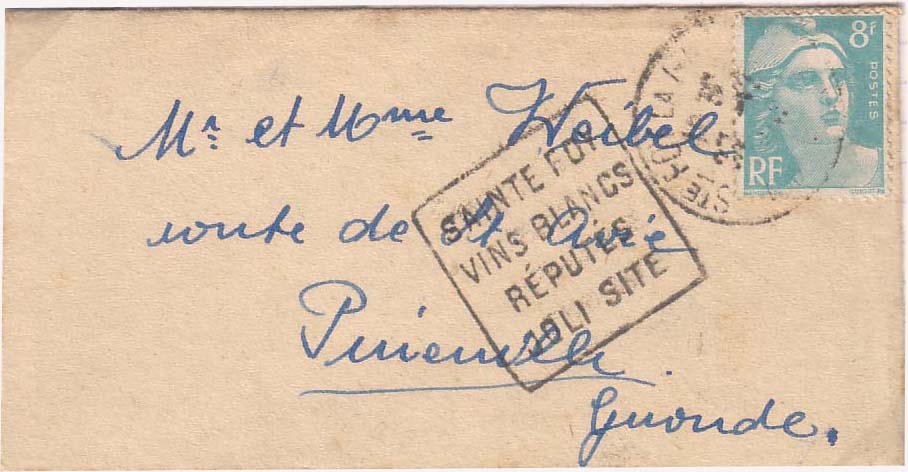 Mr et Mme Weibel
route de St Avit
Pineuilh.
Gironde.
SAINTE FOY
VINS BLANCS
RÉPUTÉS
JOLI SITE
STE FOY LA
8F
POSTES
RF